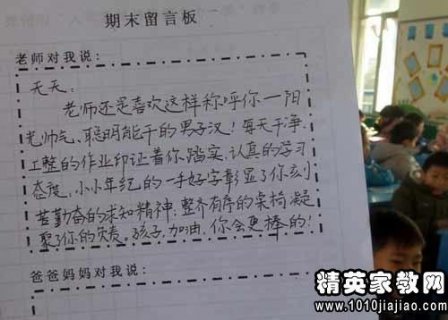 期末留言板
老师对我说：
天天：
老师还是喜欢这样称呼你—阳
光帅气、聪明能干的男子汉！每天干净、
工整的作业印证着你踏实、认真的学习
态度，小小年纪的一手好字彰显了你刻
苦勤奋的求知精神，整齐有序的桌椅凝
聚了你的责任。孩子，加油，你会更棒的！
爸爸妈妈对我说：
精英家教网
www.1010jiajiao.com